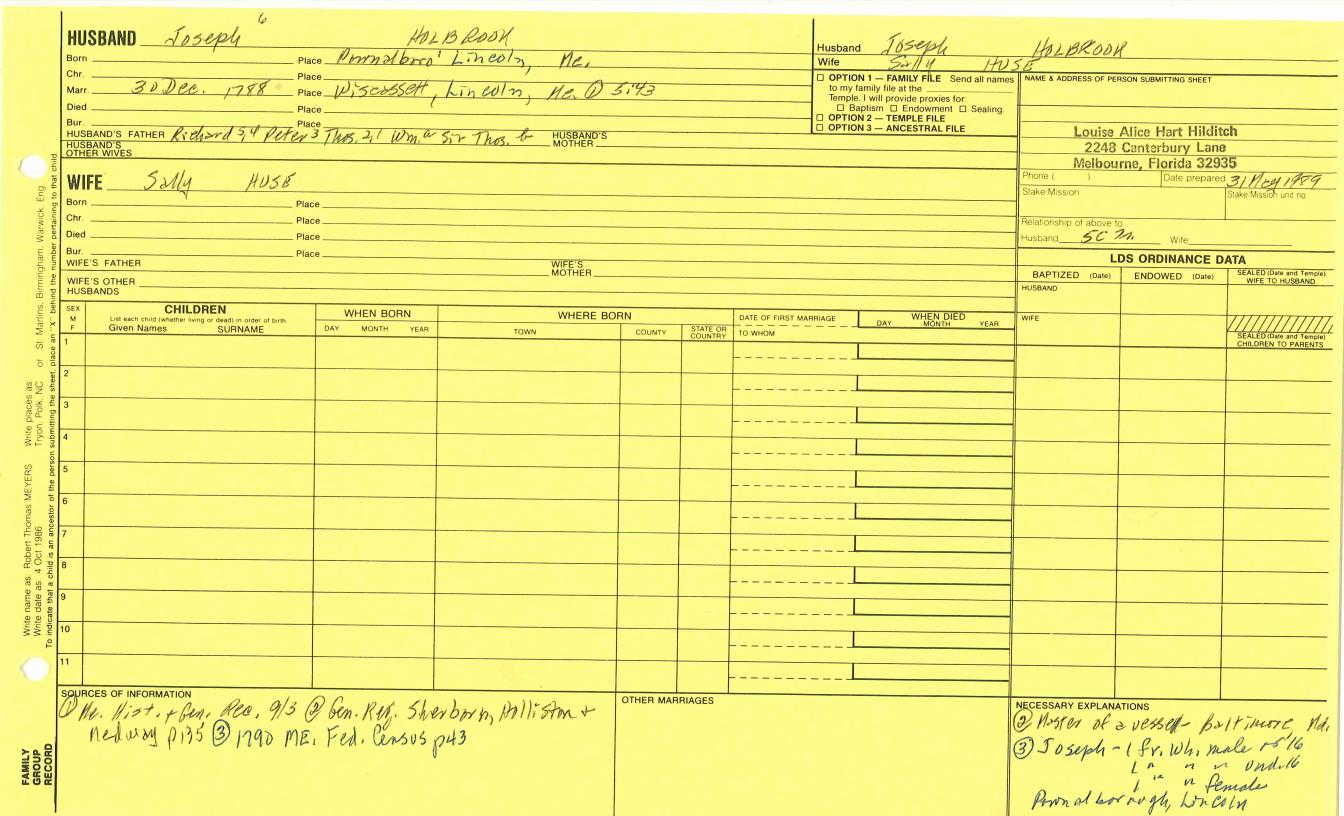 6
HUSBAND Joseph HOLBROOK
Born Place Pownalboro' Lincoln, Me.
Chr. Place
Marr. 30 Dec. 1788 Place Wiscassett, Lincoln, Me. ① 5:43
Died Place
Bur. Place
HUSBAND'S FATHER Richard 5,4 Peter 3 Thos. 2,1 Wm. a Sir Thos. b HUSBAND'S MOTHER
HUSBAND'S OTHER WIVES
Husband Joseph HOLBROOK
Wife Sally HUSE
☐ OPTION 1 — FAMILY FILE Send all names
to my family file at the
Temple. I will provide proxies for
☐ Baptism ☐ Endowment ☐ Sealing
☐ OPTION 2 — TEMPLE FILE
☐ OPTION 3 — ANCESTRAL FILE
NAME & ADDRESS OF PERSON SUBMITTING SHEET
Louise Alice Hart Hilditch
2248 Canterbury Lane
Melbourne, Florida 32935
Phone ( ) Date prepared 31 May 1989
Stake/Mission Stake/Mission unit no.
Relationship of above to
Husband 5C Wife
WIFE Sally HUSE
Born Place
Chr. Place
Died Place
Bur. Place
WIFE'S FATHER WIFE'S MOTHER
WIFE'S OTHER HUSBANDS
LDS ORDINANCE DATA
BAPTIZED (Date) ENDOWED (Date) SEALED (Date and Temple) WIFE TO HUSBAND
HUSBAND
WIFE
SEALED (Date and Temple) CHILDREN TO PARENTS
SEX M F
CHILDREN
List each child (whether living or dead) in order of birth
Given Names SURNAME
WHEN BORN
DAY MONTH YEAR
WHERE BORN
TOWN COUNTY STATE OR COUNTRY
DATE OF FIRST MARRIAGE
TO WHOM
WHEN DIED
DAY MONTH YEAR
1
2
3
4
5
6
7
8
9
10
11
SOURCES OF INFORMATION
① Me. Hist. + Gen. Rec. 9/3 ② Gen. Reg. Sherborn, Holliston +
Medway p135 ③ 1790 ME. Fed. Census p43
OTHER MARRIAGES
NECESSARY EXPLANATIONS
② Master of a vessel - Baltimore, Md.
③ Joseph - 1 fr. Wh. male of 16
1 " " " und. 16
1 " " female
Pownalborough, Lincoln
Write name as: Robert Thomas MEYERS Write places as:
Write date as: 4 Oct 1986 Tryon, Polk, NC or St. Martins, Birmingham, Warwick, Eng.
To indicate that a child is an ancestor of the person submitting the sheet, place an "X" behind the number pertaining to that child.
FAMILY
GROUP
RECORD